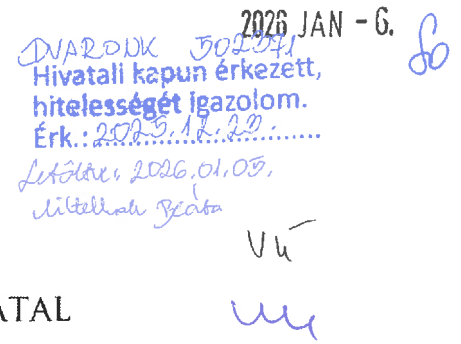 2026 JAN - 6.
DVARODK 502371
Hivatali kapun érkezett,
hitelességét igazolom.
Érk.: 2025.12.29.
Letöltve: 2026.01.05.
Beáta
Vú
ATAL